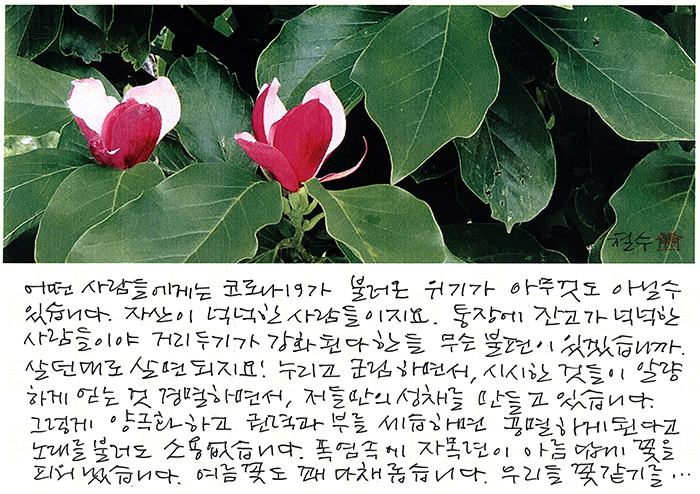 철수
어떤 사람들에게는 코로나19가 불러온 위기가 아무것도 아닐수
있습니다. 자산이 넉넉한 사람들이지요. 통장에 잔고가 넉넉한
사람들이야 거리두기가 강화된다한들 무슨 불편이 있겠습니까.
살던대로 살면 되지요! 누리고 군림하면서, 시시한 것들이 알량
하게 얻는 것 경멸하면서, 저들만의 성채를 만들고 있습니다.
그렇게 양극화하고 권력과 부를 세습하면 공멸하게 된다고
노래를 불러도 소용없습니다. 폭염속에 자목련이 아름답게 꽃을
피워 냈습니다. 여름꽃도 때 마쳐 줍습니다. 우리들 꽃같기를…